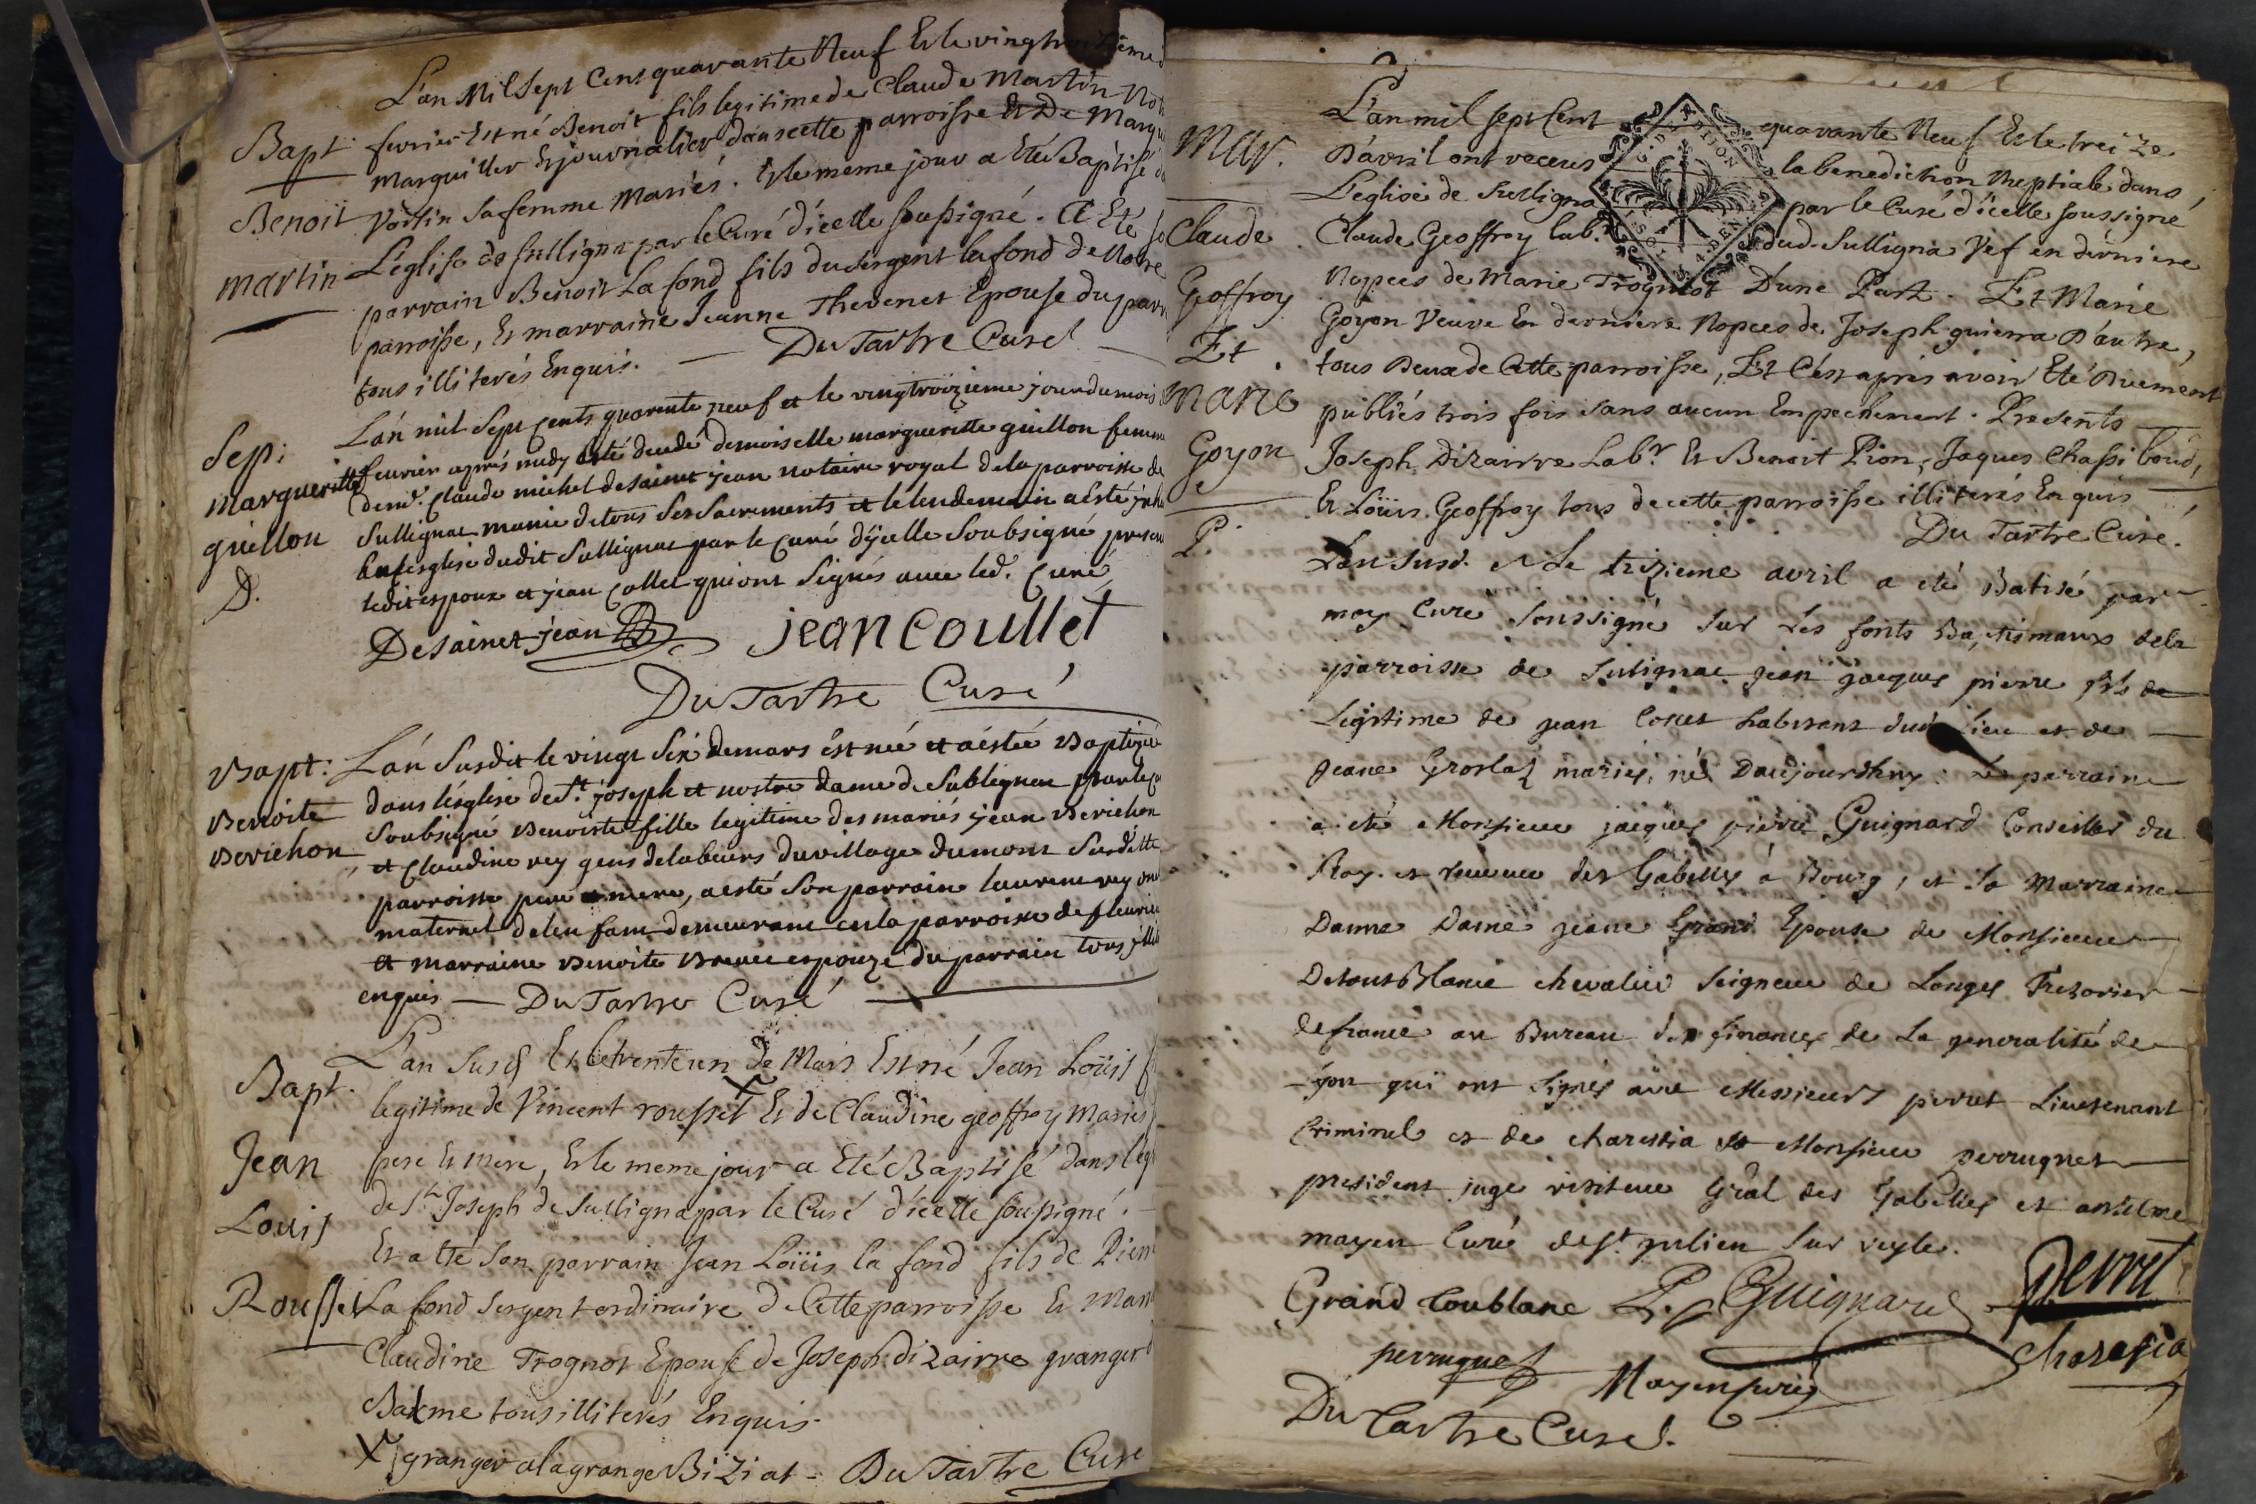 L'an Mil Sept Cent quarante Neuf Et le vingt
Bapt. fevrier Est né Benoit fils legitime de Claude Martin
marguiller Et journalier dans cette parroisse Et De
Benoit Voisin sa femme Mariés. Et le meme jour a Eté Baptisé
martin L'eglise de sulligna par le Curé d'icelle soussigné. A Eté
parrain Benoit La fond fils du sergent lafond de Notre
parroisse, Et marraine Jeanne Thevenet Epouse du
tous illiterés Enquis. — Du Tartre Curé
Sep: L'an mil Sept cents quarente neuf et le vingtroizieme jour du mois
margueritte feurier agrés midy esté décédé demoiselle margueritte guillon
guillon de mr. Claude michel desainct jean notaire royal de la parroisse de
D. Sullignat munie de tous Ses Sacrements et le lendemain a esté
En l'esglise dudit Sullignat par le Curé d'ycelle Soubsigné
ledit espoux et jean Collet qui ont Signés avec led. Curé
Desainct jean jean Coullet
Du Tartre Curé
Bapt: L'an Susdit le vingt Six de mars est née et a estée Baptizée
Benoite dans l'esglise de St. joseph et nostre dame de Sublignea par le
Berichon Soubsigné Benoiste fille legitime des mariés jean Berichon
et Claudine rey gens de labeurs du village dumont Susditte
parroisse pere et mere, a esté Son parrain laurent rey
maternel de l'enfant demeurant en la parroisse de fleurieu
et marraine Benoite espouze du parrain tous
enquis — Du Tartre Curé
L'an Susd. Et le trente un de Mars Est né Jean Loüis
Bapt. legitime de Vincent roussel Et de Claudine geoffroy Mariés
Jean pere Et mere, Et le meme jour a Eté Baptisé dans
Louis de St Joseph de Sulligna par le Curé d'icelle soussigné.
Et a eté son parrain Jean Loüis la fond fils de
Roussel La fond sergent ordinaire de Cette parroisse Et
Claudine Trognot Epouse de Joseph dizairre granger
Baxme tous illiterés Enquis.
X granger a la grange Biziat - Du Tartre Curé
Mar. L'an mil sept Cent quarante Neuf Et le treize
D'avril ont receus la benediction Nuptiale dans
L'eglise de Sulligna par le Curé d'icelle soussigné
Claude Claude Geoffroy lab.r dud. Sulligna Vef en derniere
Geoffroy Nopces de Marie Trognot D'une Part. Et Marie
Et Goyon Veuve En derniere Nopces de Joseph guierra D'autre,
Marie tous Deux de Cette parroisse, Et C'est aprés avoir Eté Duement
Goyon publiés trois fois sans aucun Empechement. Presents
Joseph Dizairre Lab.r Et Benoit Pion, Jaques Chassiboud,
Et Loüis Geoffroy tous de cette parroisse illiterés Enquis
Du Tartre Curé.
L'an susd. Le trizieme avril a eté Batisé par
moy Curé soussigné sur les fonts Baptismaux dela
parroisse de Sulignac jean jacques pierre fils
Legitime de jean habitant dud lieu et de
jeane mariés, né Daujourdhuy. Le parrain
a eté Monsieur jacques pierre Guignard Conseiller du
Roy et receveur des Gabelles à Bourg, et la Marraine
Damme Dame jeane Grand Epouse de Monsieur
chevalier seigneur de Longes Tresorier
de france au Bureau des finances de la generalité de
Lyon qui ont signés avec Messieurs perret Lieutenant
Criminel et de Monsieur perruquet
president juge visiteur Gral des Gabelles et anselme
mayen Curé de St. julien sur veyle.
Grand Coublanc P. Guignard Perret
perruquet Mayen Curé
Du Tartre Curé.